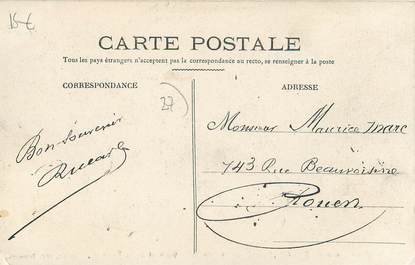 15€
CARTE POSTALE
Tous les pays étrangers n'acceptent pas la correspondance au recto, se renseigner à la poste
CORRESPONDANCE
ADRESSE
27
Bon souvenir
Monsieur Maurice Marc
743 Rue Beauvoisine
Rouen